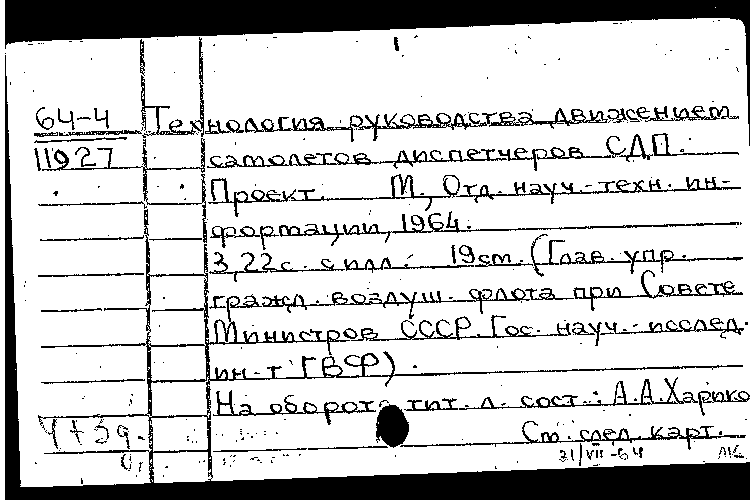 64-4 Технология руководства движением
11927 самолетов диспетчеров СДП.
Проект. М., Отд. науч.-техн. ин-
формации, 1964.
3,22с. с илл. 19см. (Глав. упр.
гражд. воздуш. флота при Совете
Министров СССР. Гос. науч.-исслед.
ин-т ГВФ).
На обороте тит. л. сост.: А.А.Харико
Ст. след. карт.
21/VII-64